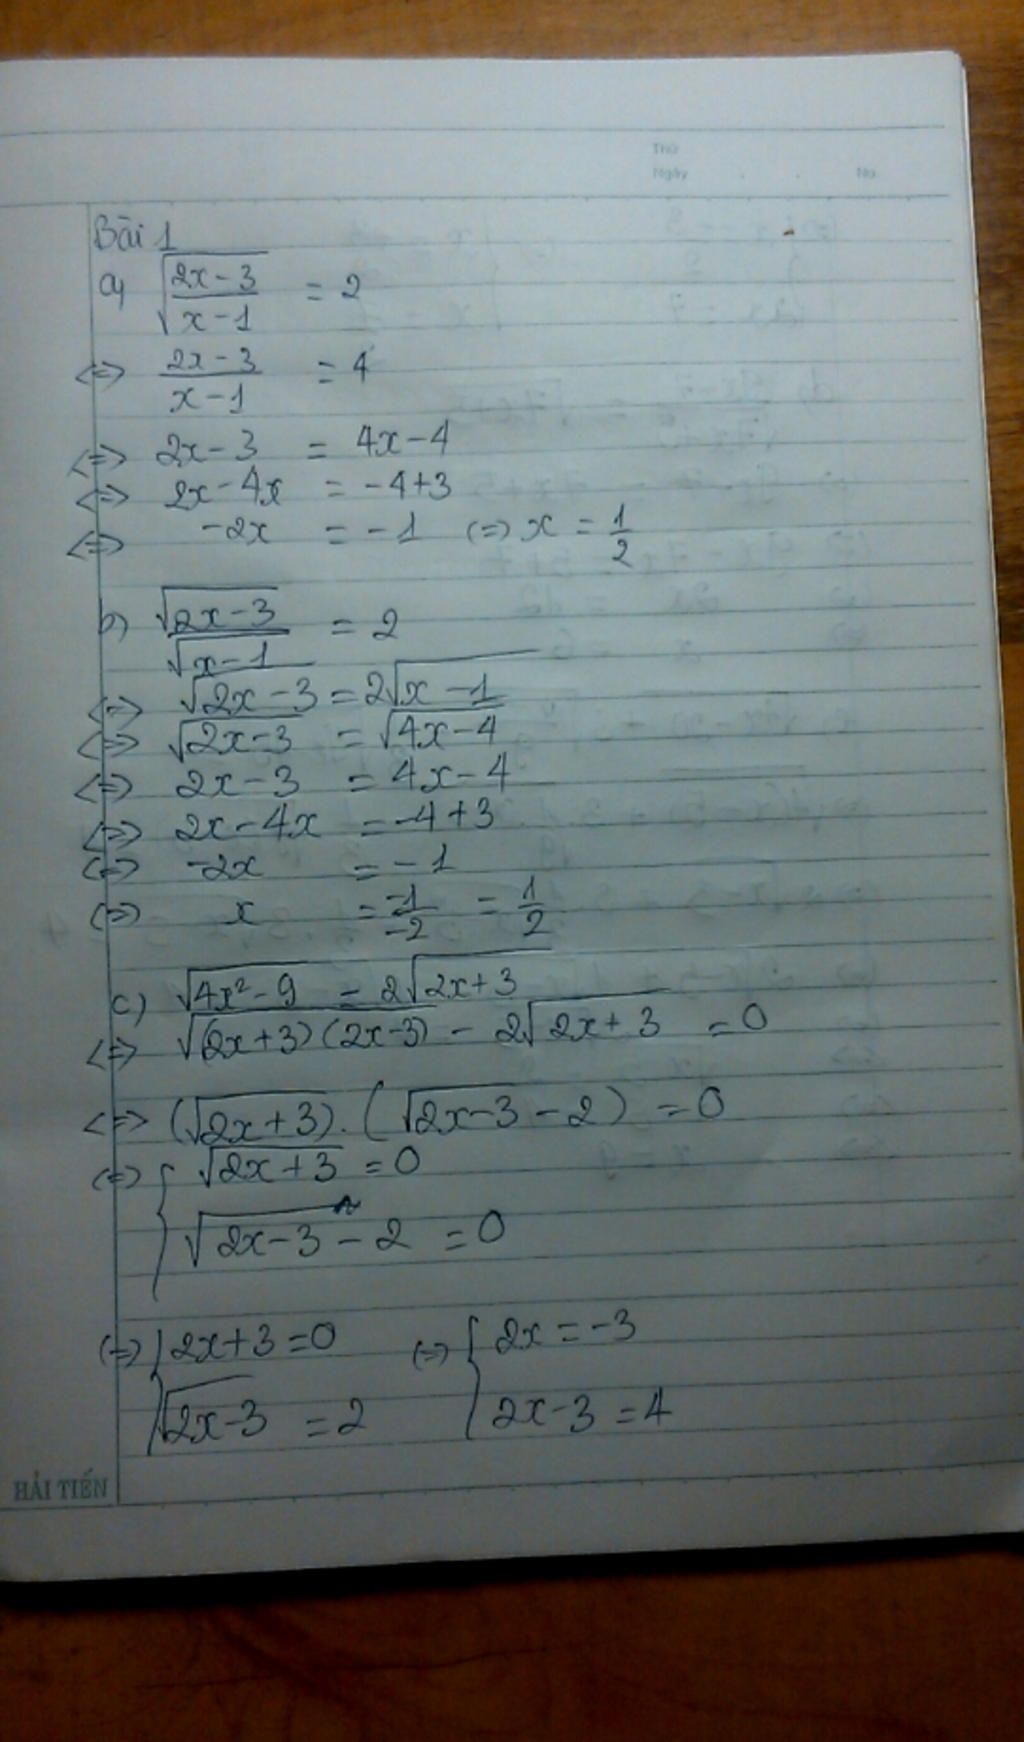 Thứ
Ngày No.
Bài 1
a) √((2x-3)/(x-1)) = 2
<=> (2x-3)/(x-1) = 4
<=> 2x-3 = 4x-4
<=> 2x-4x = -4+3
<=> -2x = -1 <=> x = 1/2
b) √(2x-3)/√(x-1) = 2
<=> √(2x-3) = 2√(x-1)
<=> √(2x-3) = √(4x-4)
<=> 2x-3 = 4x-4
<=> 2x-4x = -4+3
<=> -2x = -1
<=> x = -1/-2 = 1/2
c) √(4x²-9) = 2√(2x+3)
<=> √((2x+3)(2x-3)) - 2√(2x+3) = 0
<=> (√(2x+3)).(√(2x-3) - 2) = 0
<=> { √(2x+3) = 0
√(2x-3) - 2 = 0
<=> { 2x+3 = 0 <=> { 2x = -3
√(2x-3) = 2 2x-3 = 4
HẢI TIẾN